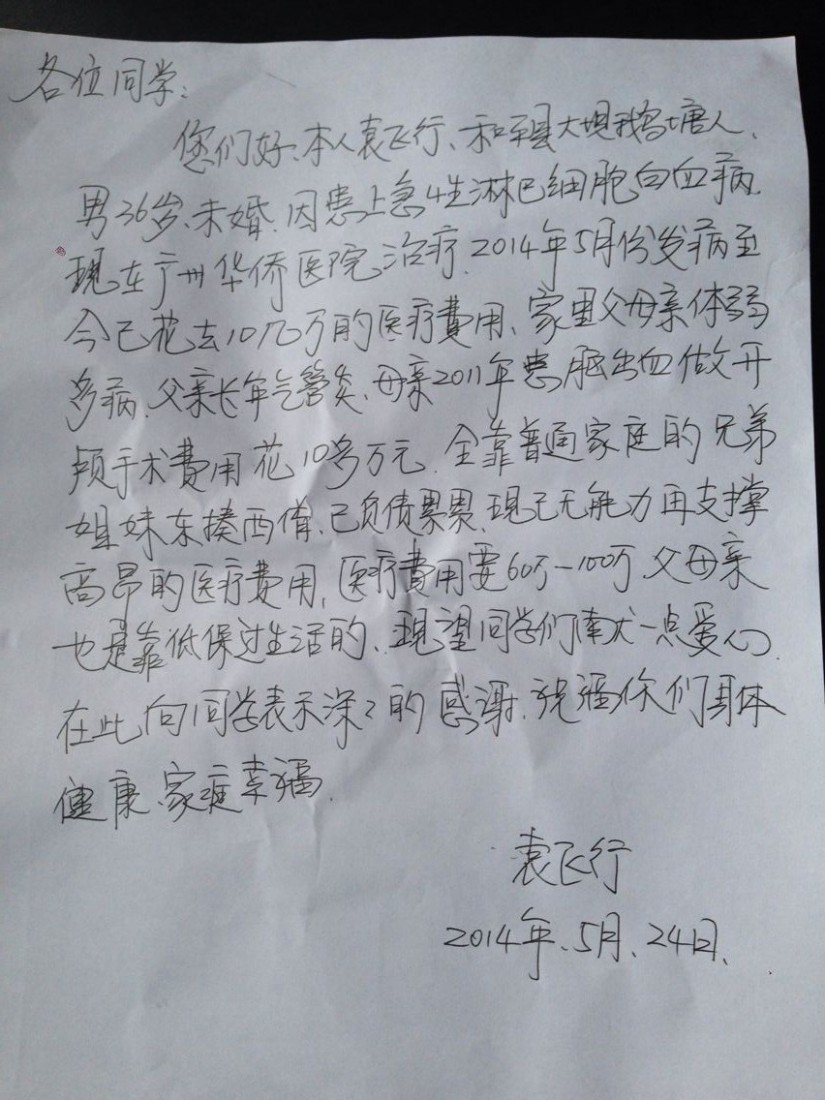 各位同学:
您们好、本人袁飞行、和平县大坝鹅塘人、
男36岁、未婚、因患上急性淋巴细胞白血病、
现在广州华侨医院治疗、2014年5月份发病至
今已花去10几万的医疗費用、家里父母亲体弱
多病、父亲长年气管炎、母亲2011年患脑出血做开
颅手术費用花10多万元、全靠普通家庭的兄弟
姐妹东揍西借、已负债累累、现已无能力再支撑
高昂的医疗费用、医疗費用要60万-100万、父母亲
也是靠低保过生活的、现望同学们献一点爱心、
在此向同学表示深々的感谢、祝福你们身体
健康、家庭幸福、
袁飞行
2014年、5月、24日、